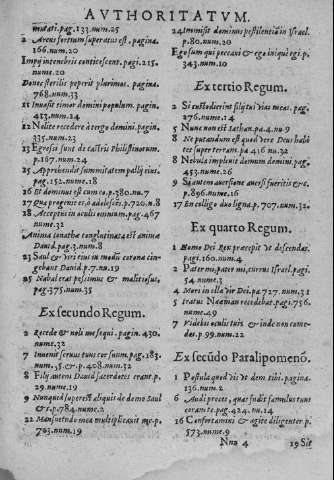 AVTHORITATVM.
mutati.pag.133.num.25
2 Arcus fortium superatus est. pagina.
166.num.20
Impij in tenebris conticescent. pagi.215.
nume.20
Donec sterilis peperit plurimos. pagina.
768.num.33
11 Inuasit timor domini populum. pagin.
413.num.14
12 Nolite recedere à tergo domini.pagin.
335.num.23
13 Egressi sunt de castris Philistinorum.
p.167.num.24
25 Apprehendit summitatem pallij eius.
pag.152.nume.18
16 Et dominus est cum eo.p.380.nu.7
17 Qua progenie est adolescēs.p.720.n.8
18 Acceptus in oculis omnium.pag.467
nume.32
Anima Ionathæ conglutinata est animæ
Dauid.pag.3.num.8
23 Saul & viri eius in modū corona cin-
gebant Dauid.p.77.nu.19
25 Nabal erat pessimus & malitiosus,
pag.375.num.35
Ex secundo Regum.
2 Recede & noli me sequi. pagin.430.
nume.32
7 Inuenit seruus tuus cor suum.pag.183.
num.35.& p.408.num.32
8 Filij autem Dauid sacerdotes erant.p.
29.nume.19
9 Nunquid superest aliquis de domo Saul
&c.p.784.nume.2
22 Mansuetudo mea multiplicauit me.p.
703.num.19
24 Immisit dominus pestilentiā in Israel.
p.80.num.20
Ego sum qui peccaui & ego iniquè egi.p.
343.num.10
Ex tertio Regum.
2 Si custodierint filij tui vias meas.pag.
276.nume.14
5 Nunc non est sathan.pa.4.nu.9
8 Ne putandum est quod verè Deus habi-
tet super terram.pa.416.nu.32
8 Nebula impleuit domum domini.pag.
453.nume.26
9 Si autem auersione auersi fueritis &c.
p.896.nume.16
17 En colligo duo ligna.p.707.num.32.
Ex quarto Regum.
1 Homo Dei Rex præcepit vt descendas.
pagi.160.num.4
2 Pater mi, pater mi, currus Israel.pagi.
54.nume.3
4 Mors in olla vir Dei.pa.727.num.31
5 Iratus Naaman recedebat.pagi.756.
nume.49
7 Videbis oculis tuis & inde non come-
des.p.99.num.22
Ex secūdo Paralipomenō.
1 Postula quod vis vt dem tibi.pagina.
136.num.2
6 Audi preces, quas fudit famulus tuus
coram te.pag.424.nu.14
16 Confortamini & agite diligenter.p.
573.nume.9
Nnn 4
19 Sit